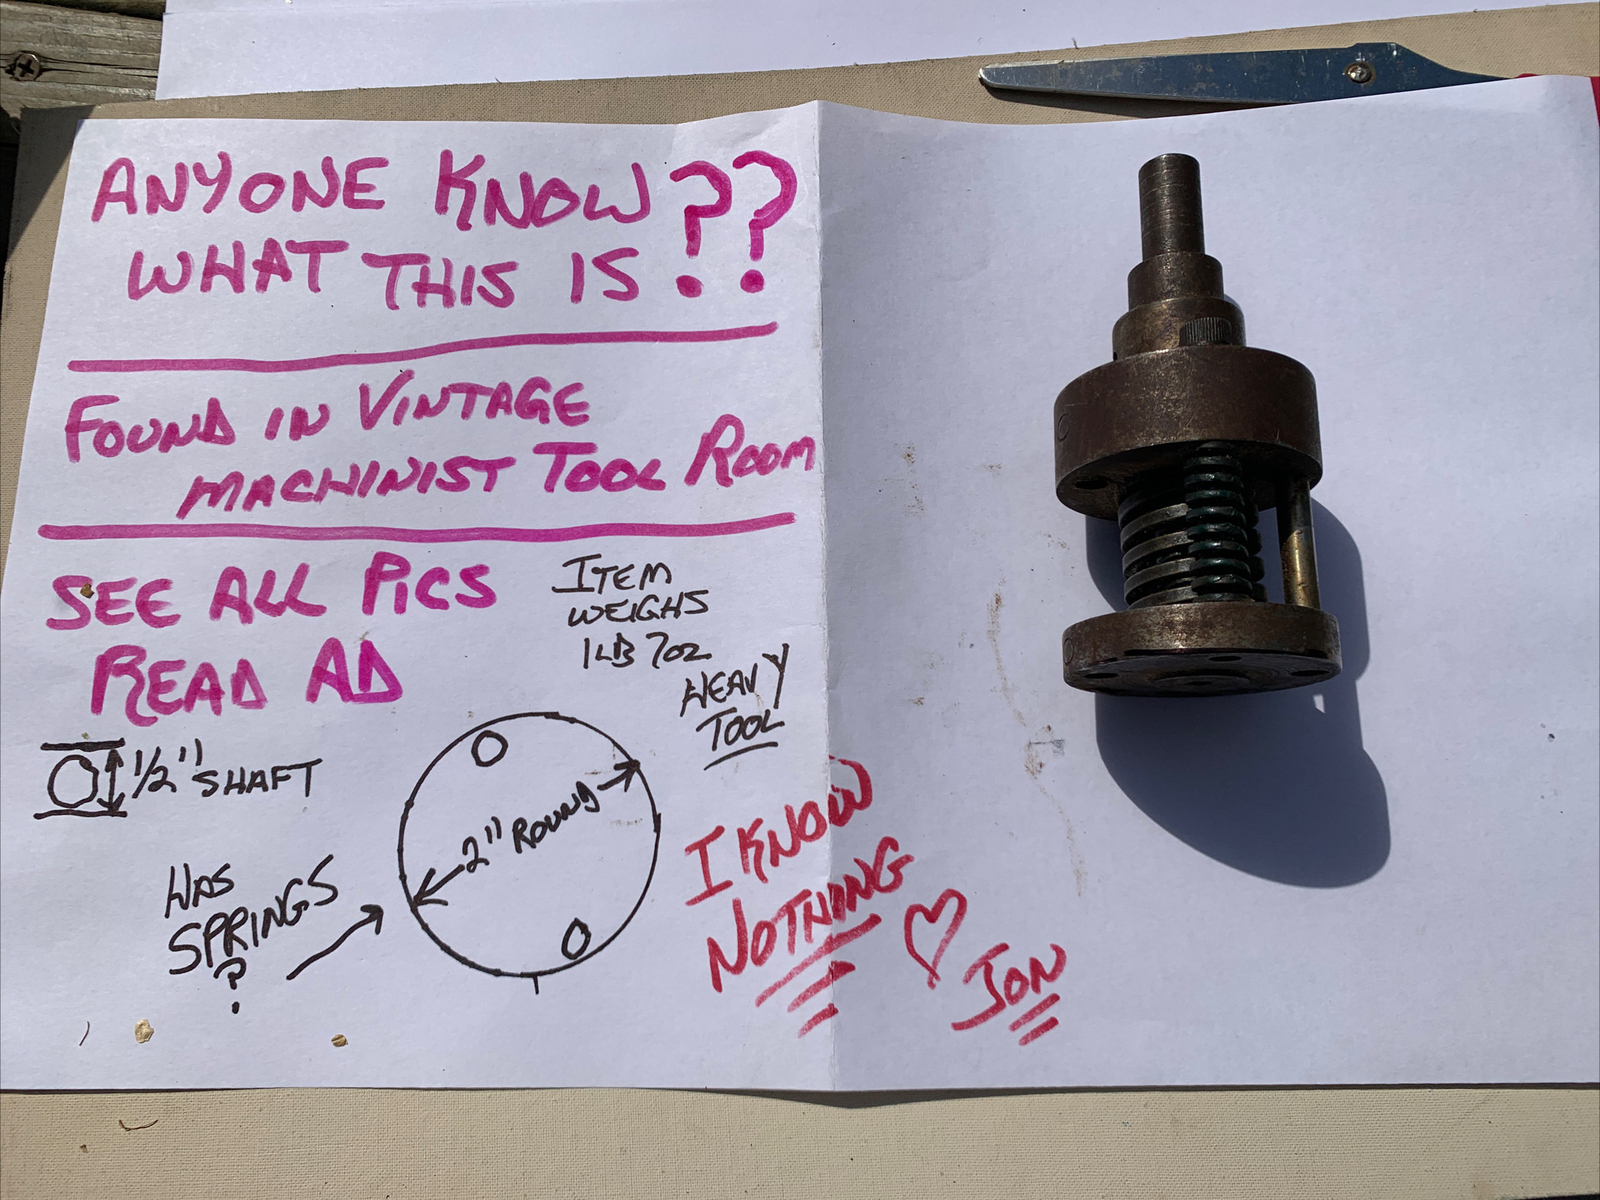 ANYONE KNOW ??
WHAT THIS IS
FOUND IN VINTAGE
MACHINIST TOOL ROOM
SEE ALL PICS
READ AD
ITEM
WEIGHS
1LB 7OZ
HEAVY
TOOL
1/2" SHAFT
2" ROUND
HAS
SPRINGS
?
I KNOW
NOTHING
♡ JON